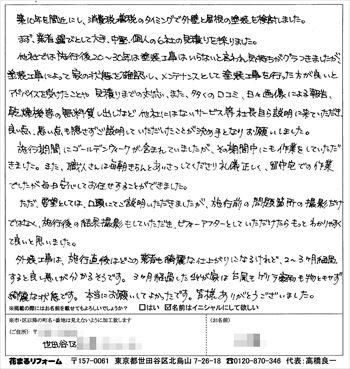 築10年を間近にし、消費税増税のタイミングで外壁と屋根の塗装を検討しました。
まず、業者選びとして大き、中堅、個人の6社の見積りを採りました。
他社では施行後20～30年は塗装工事はいらないと言われ、気持ちがぐらつきましたが、
塗装工事によって家の状態をご確認し、メンテナンスとして塗装工事を行った方が良いと
アドバイスを受けたことや見積りまでの対応、また、多くの口コミ、日々画像による報告、
乾燥機等の無料貸し出しなど他社にはないサービス等社長自ら説明に来ていただき
良い点、悪い点も隠さずご説明していただいたことが決め手となりお願いしました。
施行期間にゴールデンウィークが含まれていましたが、その期間中にも作業をしていただ
きました。また、職人さんは毎朝きちんとあいさつしてくださり礼儀正しく、留守宅での作業
でしたが毎日安心してお任せすることができました。
ただ、要望としては、口頭にてご説明いただきましたが、施行前の問題箇所の撮影だけ
ではなく、施行後の結果撮影もしていただき、ビフォーアフターとしていただけたらもっとわかりやすく
て良いと思いました。
外装工事は、施行直後はどこの業者も綺麗な仕上がりになるけれど、2～3ヶ月経過
すると良し悪しが分かるそうです。3ヶ月経過した我が家は台風もゲリラ豪雨もものともせず
綺麗な状態です。本当にお願いしてよかったです。皆様ありがとうございました。
※掲載の際にはお名前を載せてもよろしいでしょうか？ □はい ☑名前はイニシャルにして欲しい
※市・区以降の町名・番地は見えないように加工致します
（ご住所） 〒
世田谷区
（お名前）
花まるリフォーム 〒157-0061 東京都世田谷区北烏山7-26-18 ☎0120-870-346 代表：高橋良一